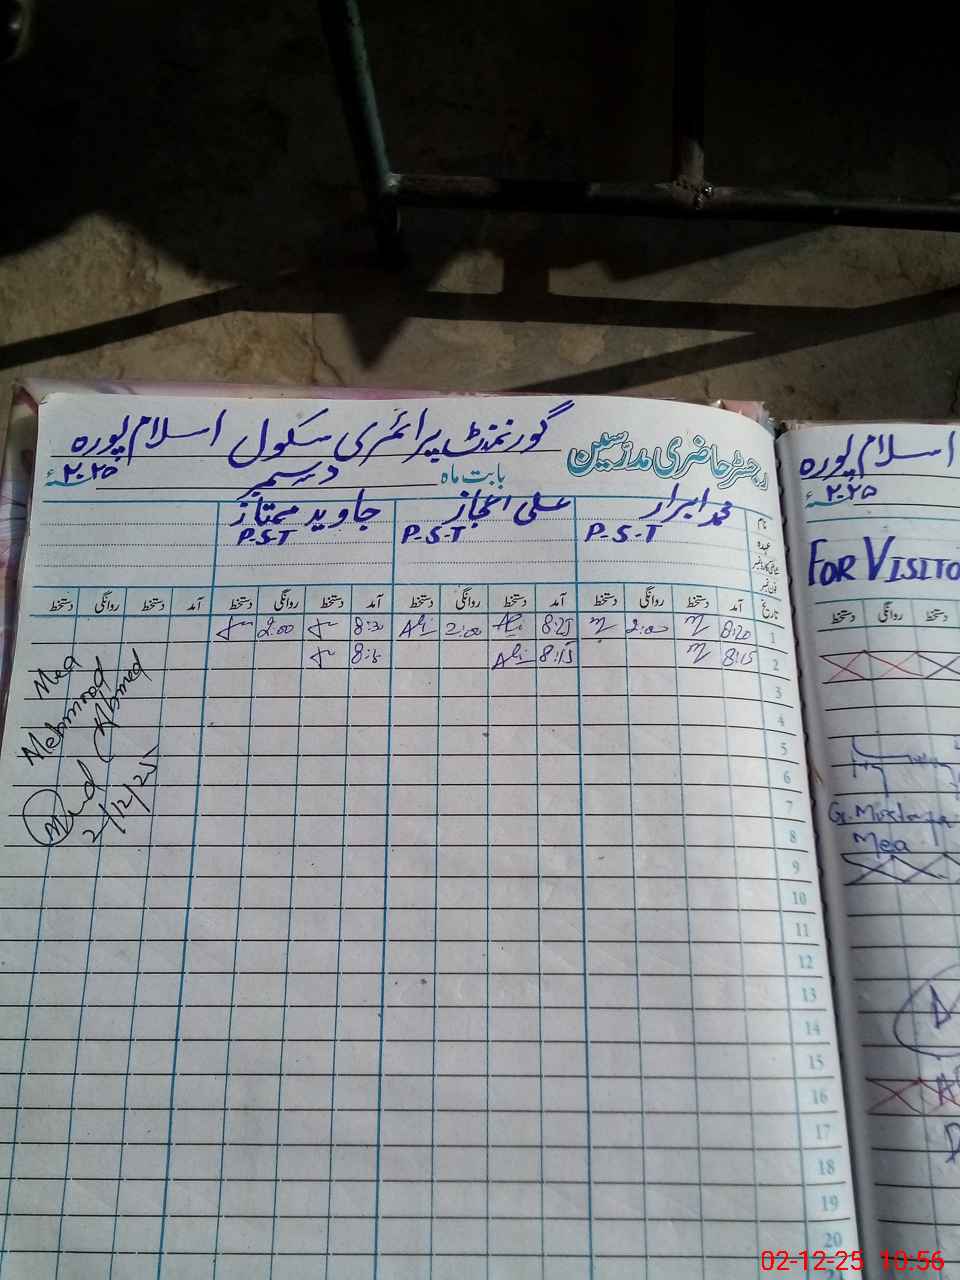 گورنمنٹ پرائمری سکول اسلام پورہ
رجسٹر حاضری مدرسین بابت ماہ دسمبر ۲۰۲۵ء
نام محمد ابرار علی اعجاز جاوید ممتاز
عہدہ P.S.T P.S.T P.S.T
تاریخ آمد دستخط روانگی دستخط آمد دستخط روانگی دستخط آمد دستخط روانگی دستخط آمد دستخط روانگی دستخط
1 8:20 2:00 8:25 Ali 2:00 Ali 8:30 2:00
2 8:15 8:15 Ali
3
4
5
6
7
8
9
10
11
12
13
14
15
16
17
18
19
20
Mea
Mehmood
Ahmed
2/12/25
اسلام پورہ
۲۰۲۵ء
FOR VISITO
دستخط روانگی دستخط
Mea
02-12-25 10:56